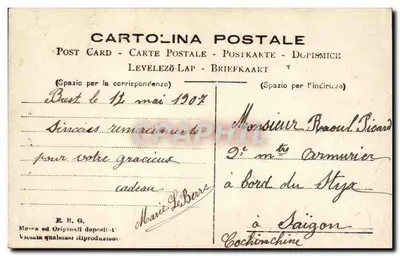 CARTOLINA POSTALE
POST CARD - CARTE POSTALE - POSTKARTE - DOPISNICE
LEVELEZŐ-LAP - BRIEFKAART
(Spazio per la corrispondenza)
(Spazio per l'indirizzo)
Brest le 12 mai 1907
Sincères remerciements
pour votre gracieux
cadeau
Marie Le Berre
E. R. G.
Marca ed Originali deposit-i
Vietata qualsiasi Riproduzione
Monsieur Raoul Picard
2e mtre armurier
à bord du Styx
à Saïgon
Cochinchine